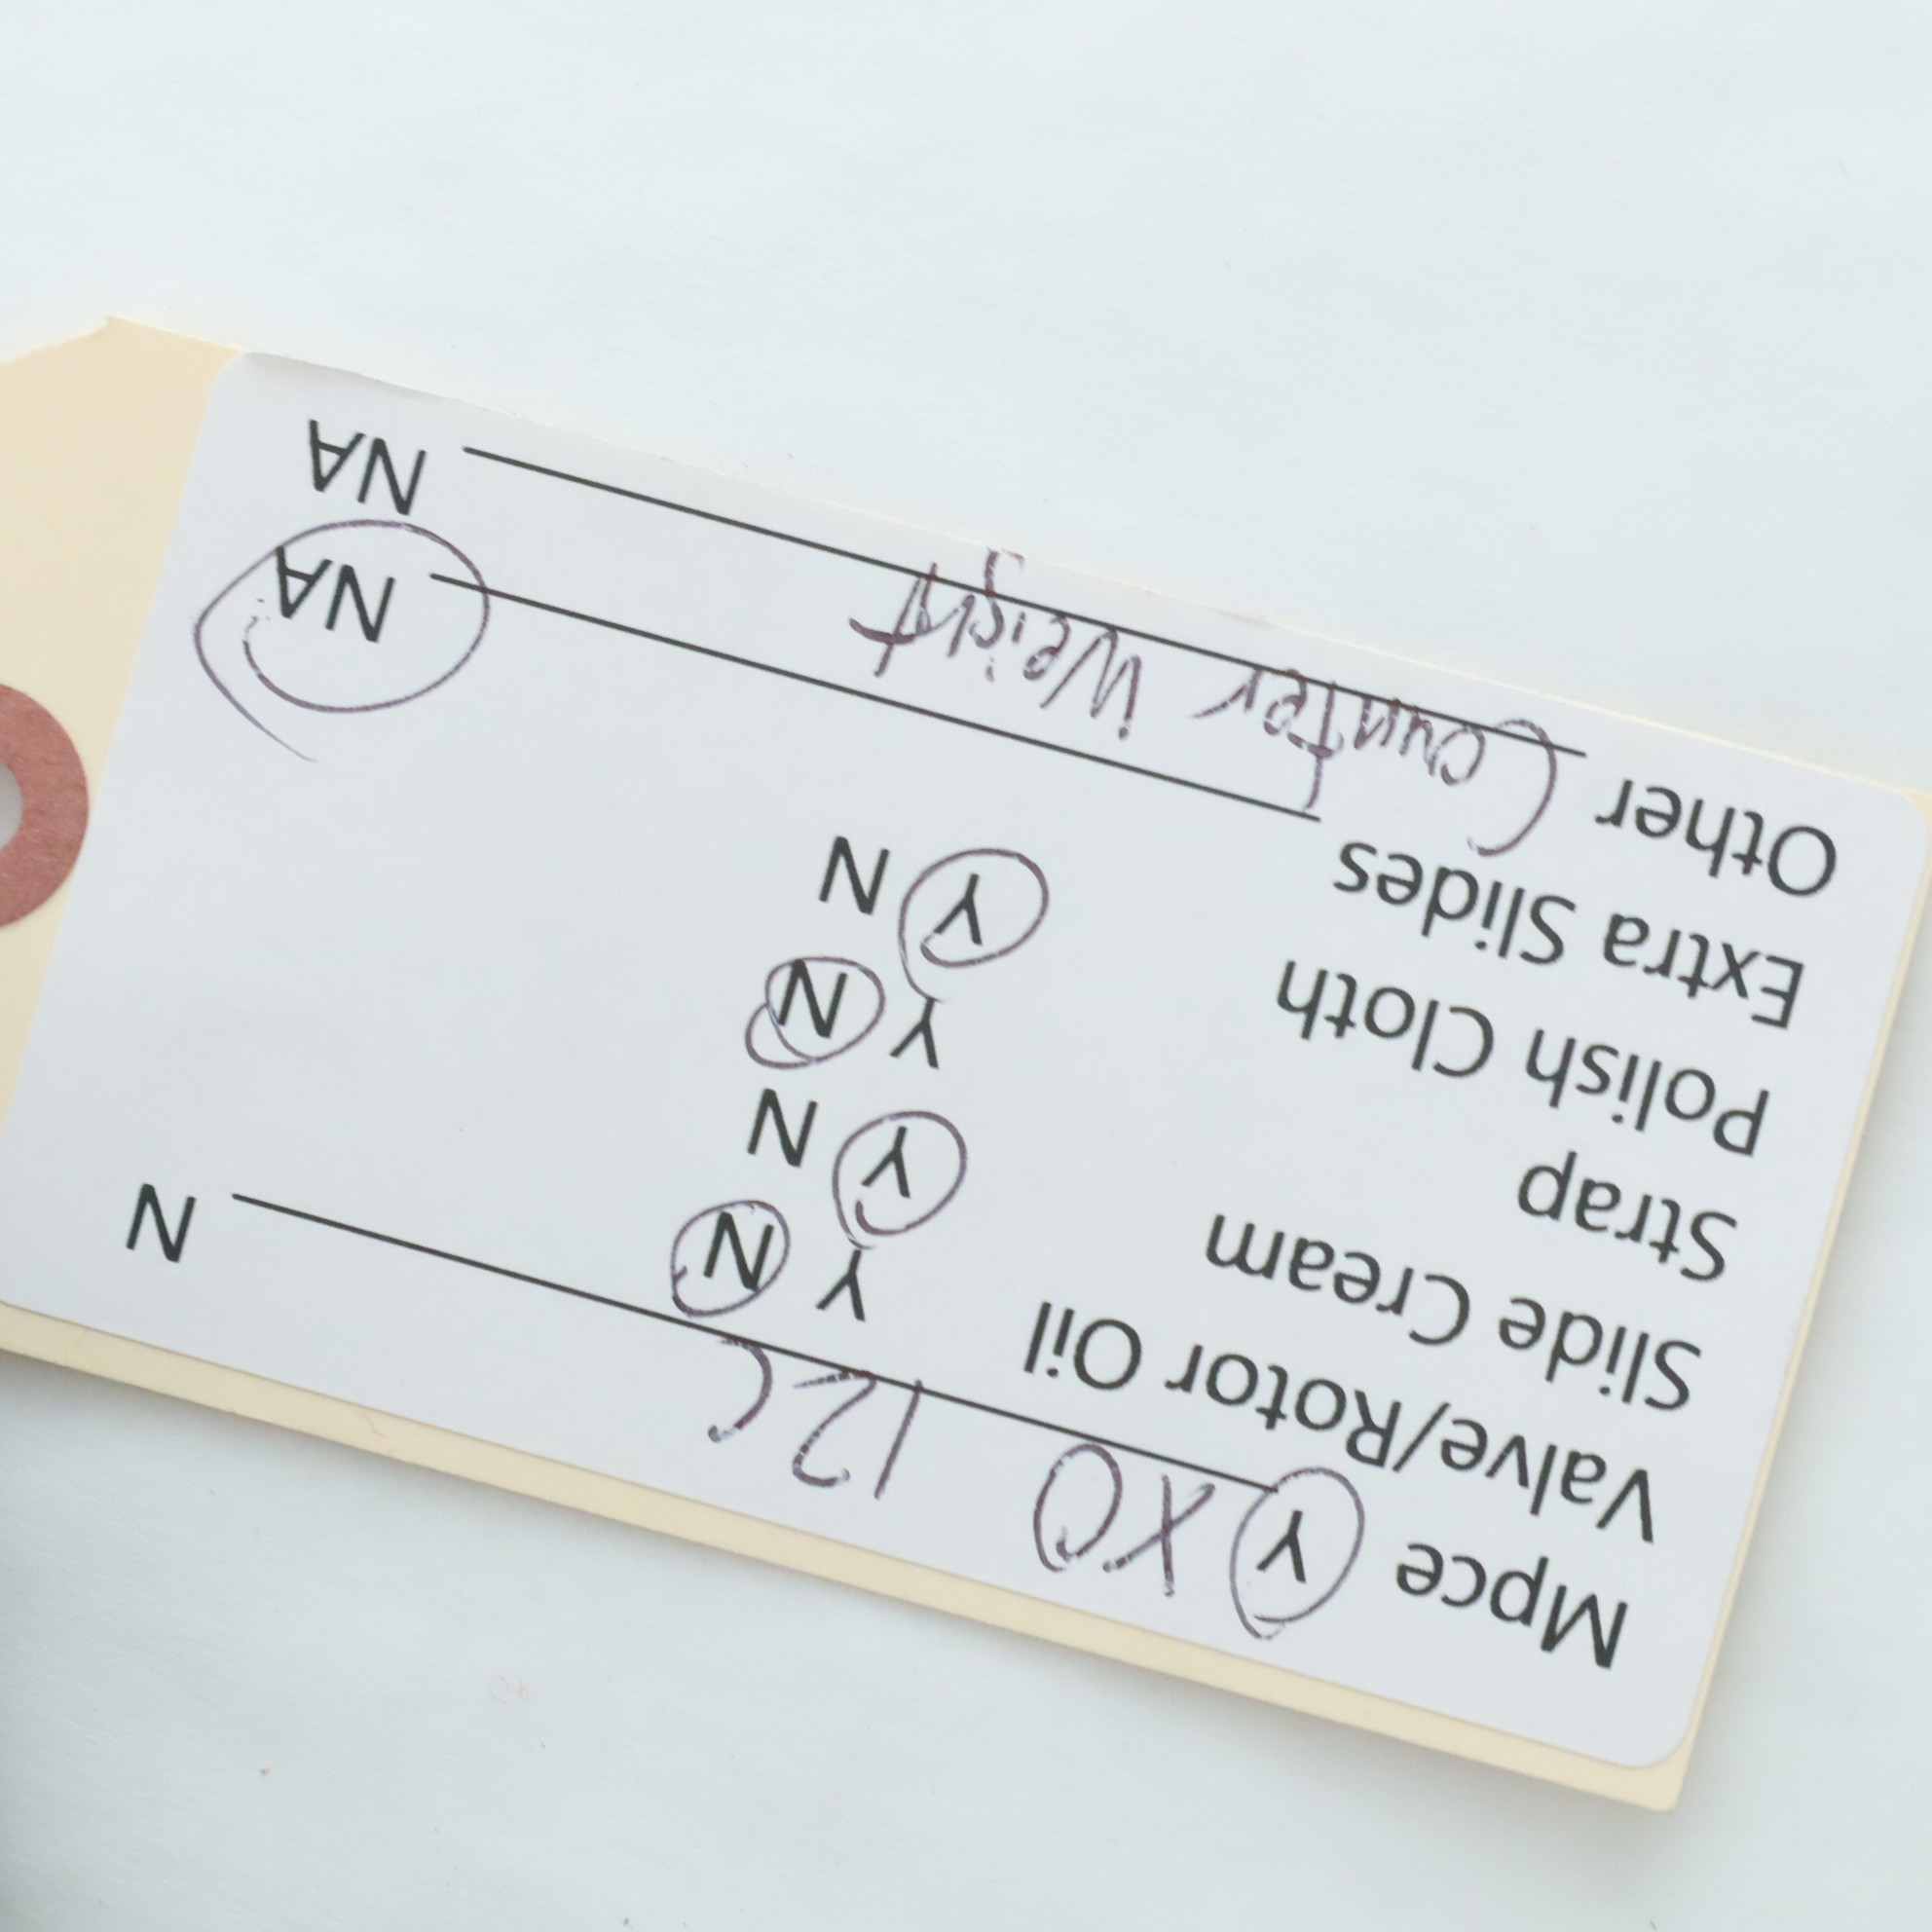 Mpce Y XO 12C N
Valve/Rotor Oil Y N
Slide Cream Y N
Strap Y N
Polish Cloth Y N
Extra Slides NA
Other Counter Weight NA